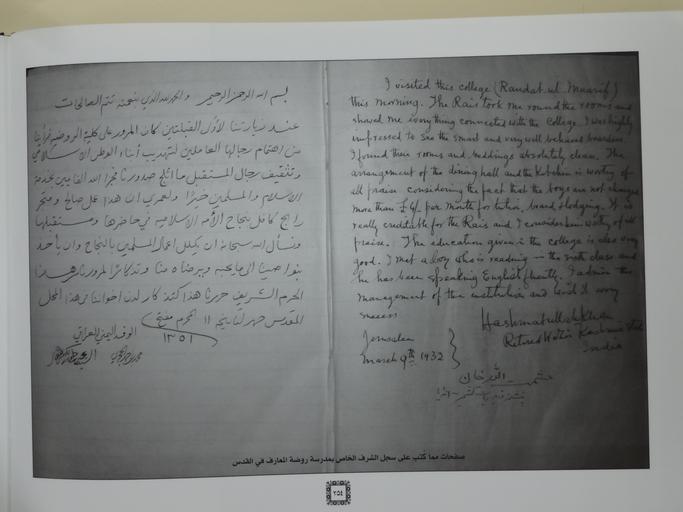 بسم الله الرحمن الرحيم والحمد لله الذي بنعمته تتم الصالحات
عند زيارتنا لأولى القبلتين كان المرور على كلية الروضة فرأينا
من اهتمام رجالها العاملين لتهذيب أبناء الوطن الاسلامي
وتثقيف رجال المستقبل ما اثلج صدورنا فجزا الله القائمين بخدمة
الاسلام والمسلمين خيرًا ولعمري ان هذا عمل صالح ومتجر
رابح كافل بنجاح الأمة الاسلامية في حاضرها ومستقبلها
ونسأل الله سبحانه ان يكلل اعمال المسلمين بالنجاح وان يأخذ
بنواصينا الى ما يحبه ويرضاه منا وتذكارًا لمرورنا بهذا
الحرم الشريف حررنا هذا كتذكار لدن اخواننا في هذا المحل
المقدس حرر لتاريخ ١١ محرم مفتتح
١٣٥١
الوفد اليمني العراقي
I visited this college (Raudat ul Maarif)
this morning. The Rais took me round the rooms and
showed me everything connected with the College. I was highly
impressed to see the smart and very well behaved boarders.
I found their rooms and beddings absolutely clean. The
arrangement of the dining hall and the kitchen is worthy of
all praise considering the fact that the boys are not charged
more than £4/- per month for tution, board & lodging. It is
really creditable for the Rais and I consider him worthy of all
praise. The education given in the college is also very
good. I met a boy who is reading in the sixth class and
he has been speaking English fluently. I admire the
management of the institution and wish it every
success
Hashmatullah Khan
Retired Kashmir State
India
Jerusalem
March 9th 1932
حشمت الله خان
صفحات مما كتب على سجل الشرف الخاص بمدرسة روضة المعارف في القدس
٢٥٤